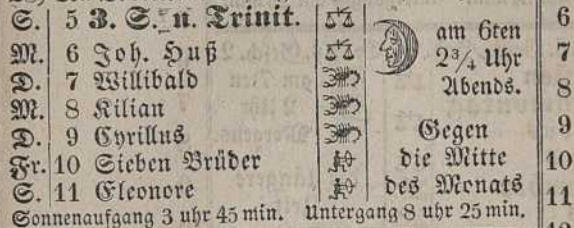 S. 5 3. S. n. Trinit. am 6ten 6
M. 6 Joh. Huß 2¾ Uhr 7
D. 7 Willibald Abends. 8
M. 8 Kilian
D. 9 Cyrillus Gegen 9
Fr. 10 Sieben Brüder die Mitte 10
S. 11 Eleonore des Monats 11
Sonnenaufgang 3 uhr 45 min. Untergang 8 uhr 25 min.